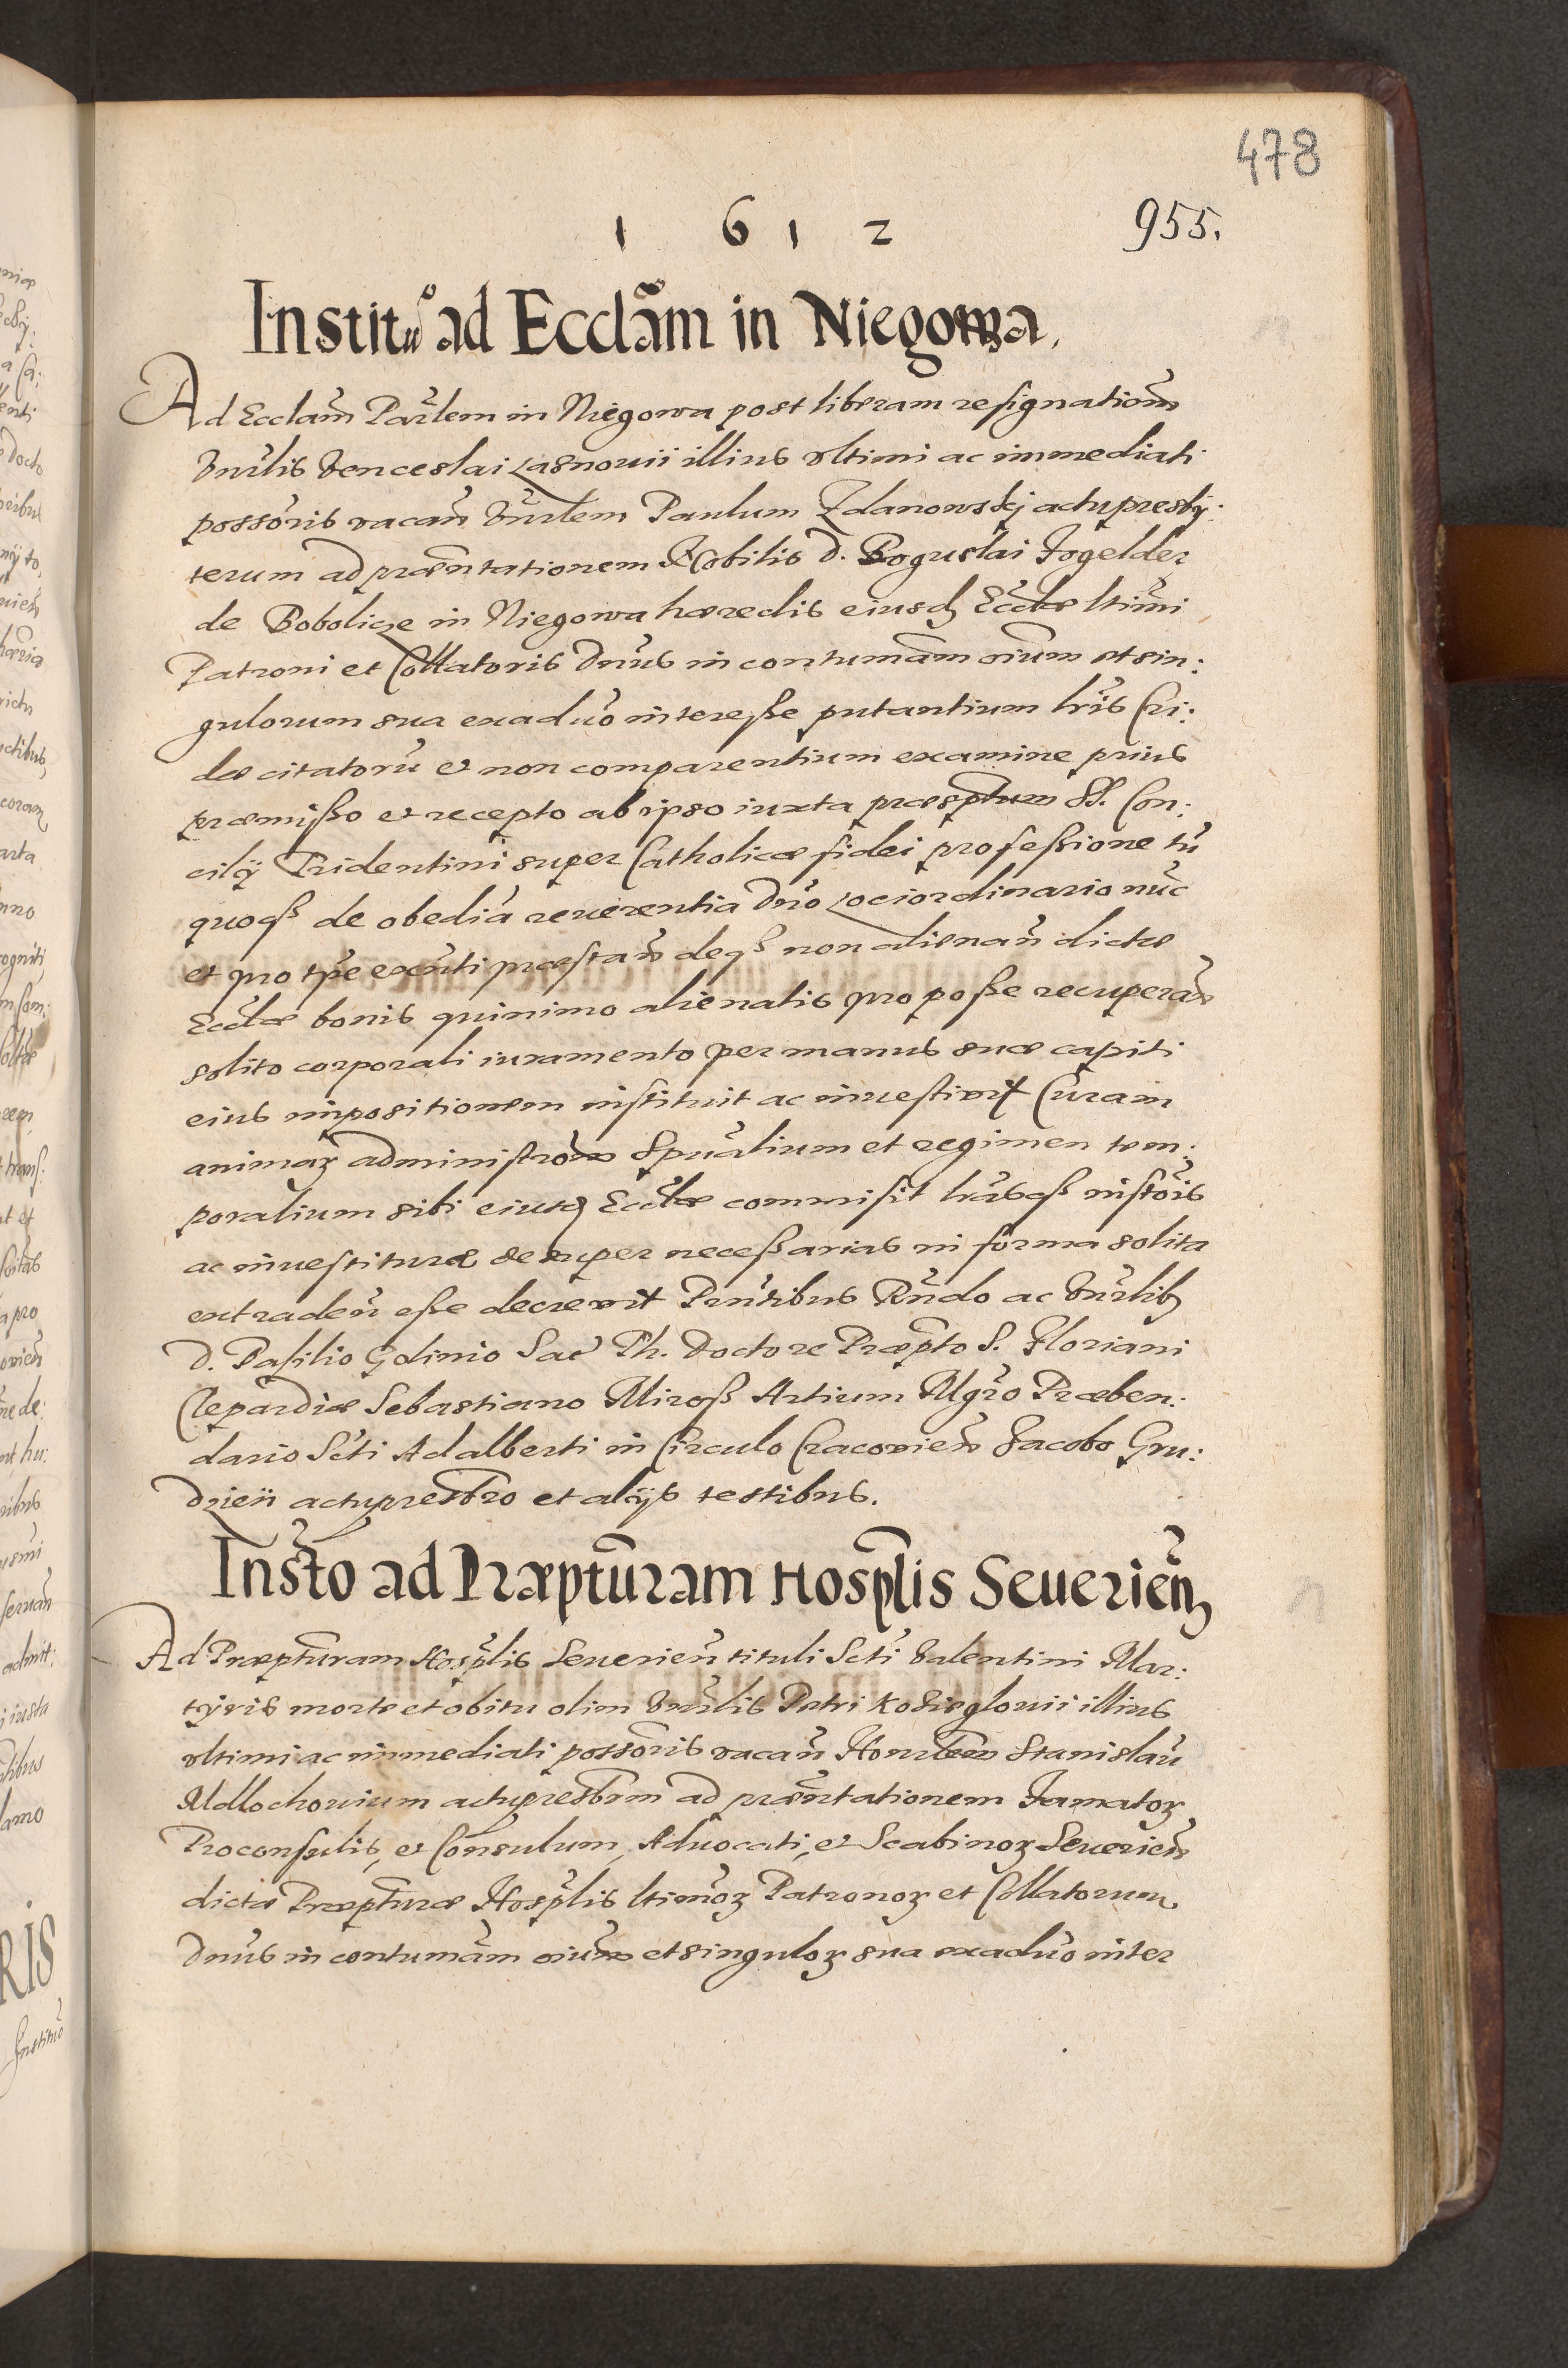 478
1 6 1 2
955.
Institu͠o ad Eccla͠m in Niegowa.
Ad Eccla͠m Par͠lem in Niegowa post liberam resignatio͠m
Vn͠rlis Venceslai Lasnouii illius vltimi ac immediati
posso͠ris vaca͠n Vn͠rlem Paulum Zdanowskj actupresby:
terum ad præn͠tationem Nobilis D. Boguslai Fogelder
de Bobolicze in Niegowa hæredis eiusdꝫ Eccl͠æ lti͠mi
Patroni et Collatoris Dn͠us in contuma͠m oi͠um et sin:
gulorum sua exadu͠o interesse putantium lr͠is Cri:
dæ citatorũ et non comparentium examine prius
præmisso et recepto ab ipso iuxta præsptum SS. Con:
cilÿ Tridentini super Catholicæ fidei professione tũ
quoqꝫ de obedi͠a reuerentia Dn͠o Lociordinario nũc
et pro tp͠re exn͠ti præsta͠n deqꝫ non aliena͠n dictæ
Eccl͠æ bonis quinimo alienatis pro posse recupera͠n
solito corporali iuramento per manus suæ capiti
eius impositionem instituit ac inuestiuit Curam
animaꝝ administro͠em Spu͠alium et regimen tem:
poralium sibi eiusdꝫ Eccl͠æ commisit lr͠asqꝫ insto͠is
ac inuestituræ desuper necessarias in forma solita
extrade͠n esse decreuit Pn͠tibus Rn͠do ac Vn͠rlibꝫ
D. Basilio Golinio Sac͠ Th. Doctore Præp͠to S. Floriani
Clepardiæ Sebastiano Mirosz Artium Mgr͠o Præben:
dario Sc͠ti Adalberti in Circulo Cracouie͠n Jacobo Gru:
dzien actupresb͠ro et alijs testibus.
Inst͠o ad Præpt͠uram Hosp͠lis Seuerie͠n
Ad Præpt͠uram Hosp͠lis Seuerie͠n tituli Sc͠ti Valentini Mar:
tyris morte et obitu olim Vn͠rlis Petri Kozieglouii illius
vltimi ac immediati posso͠ris vaca͠n Hon͠rlem Stanislaũ
Mdlochouium actupresb͠rm ad præn͠tationem Famatoꝝ
Proconsulis, et Consulum, Aduocati, et Scabinoꝝ Seuerie͠n
dictæ Præpt͠uræ Hosp͠lis ltimo͠ꝝ Patronoꝝ et Collatorum
Dn͠us in contuma͠m oi͠um et singuloꝝ sua exadu͠o inter